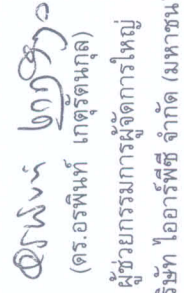 (ดร.อรพินท์ เกตุรัตนกุล)
ผู้ช่วยกรรมการผู้จัดการใหญ่
ริษัท ไออาร์พีซี จำกัด (มหาชน